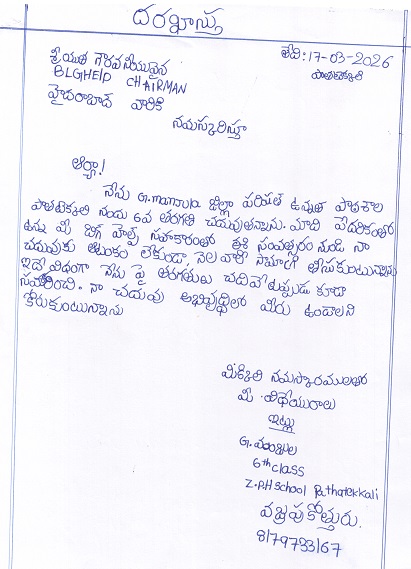 దరఖాస్తు
తేది:17-03-2026
పాతటెక్కలి
శ్రీయుత గౌరవనీయులైన
BLGHELP CHAIRMAN
హైదరాబాద్ వారికి
నమస్కరిస్తూ
ఆర్యా!
నేను G.manjula జిల్లా పరిషత్ ఉన్నత పాఠశాల
పాతటెక్కలి నందు 6వ తరగతి చదువుతున్నాను. మాది పేదరికంలో
ఉన్న మీ బిగ్ హెల్ప్ సహకారంతో సంవత్సరం నుండి నా
చదువుకు ఆటంకం లేకుండా, నెల వారి సామాగ్రి తీసుకుంటున్నాను
ఇదే విధంగా నేను పై తరగతులు చదివేటప్పుడు కూడా
నా చదువు అభివృద్ధిలో మీరు ఉండాలని
కోరుకుంటున్నాను
నమస్కారములతో
మీ విధేయురాలు
ఇట్లు
G. మంజుల
6th class
Z.P.H school Pathatekkali
వజ్రపుకొత్తూరు.
8179733167